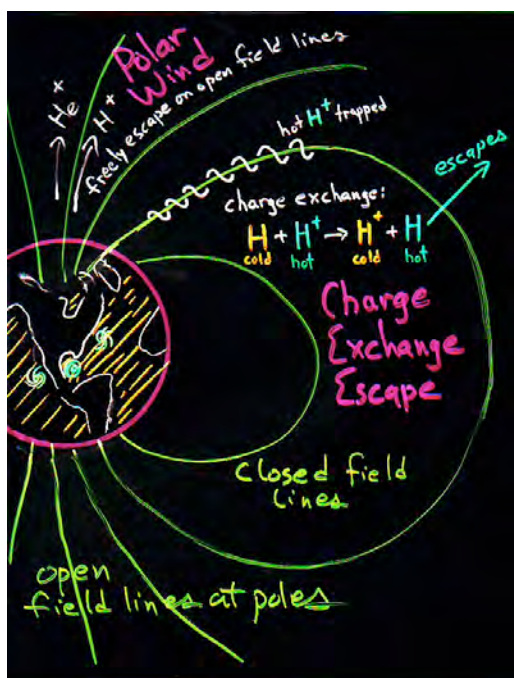 Polar
Wind
He⁺
H⁺
freely escape on open field lines
hot H⁺ trapped
escapes
charge exchange:
H + H⁺ → H⁺ + H
cold hot cold hot
Charge
Exchange
Escape
closed field
lines
open
field lines at poles